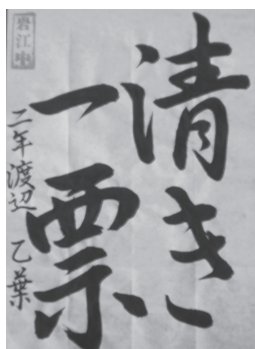 清き
一票
二年 渡辺 乙葉